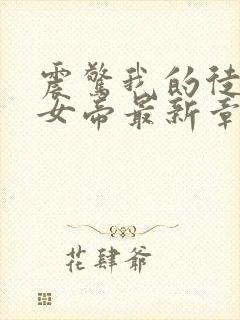 震惊我的徒
女帝最新章
花肆爷